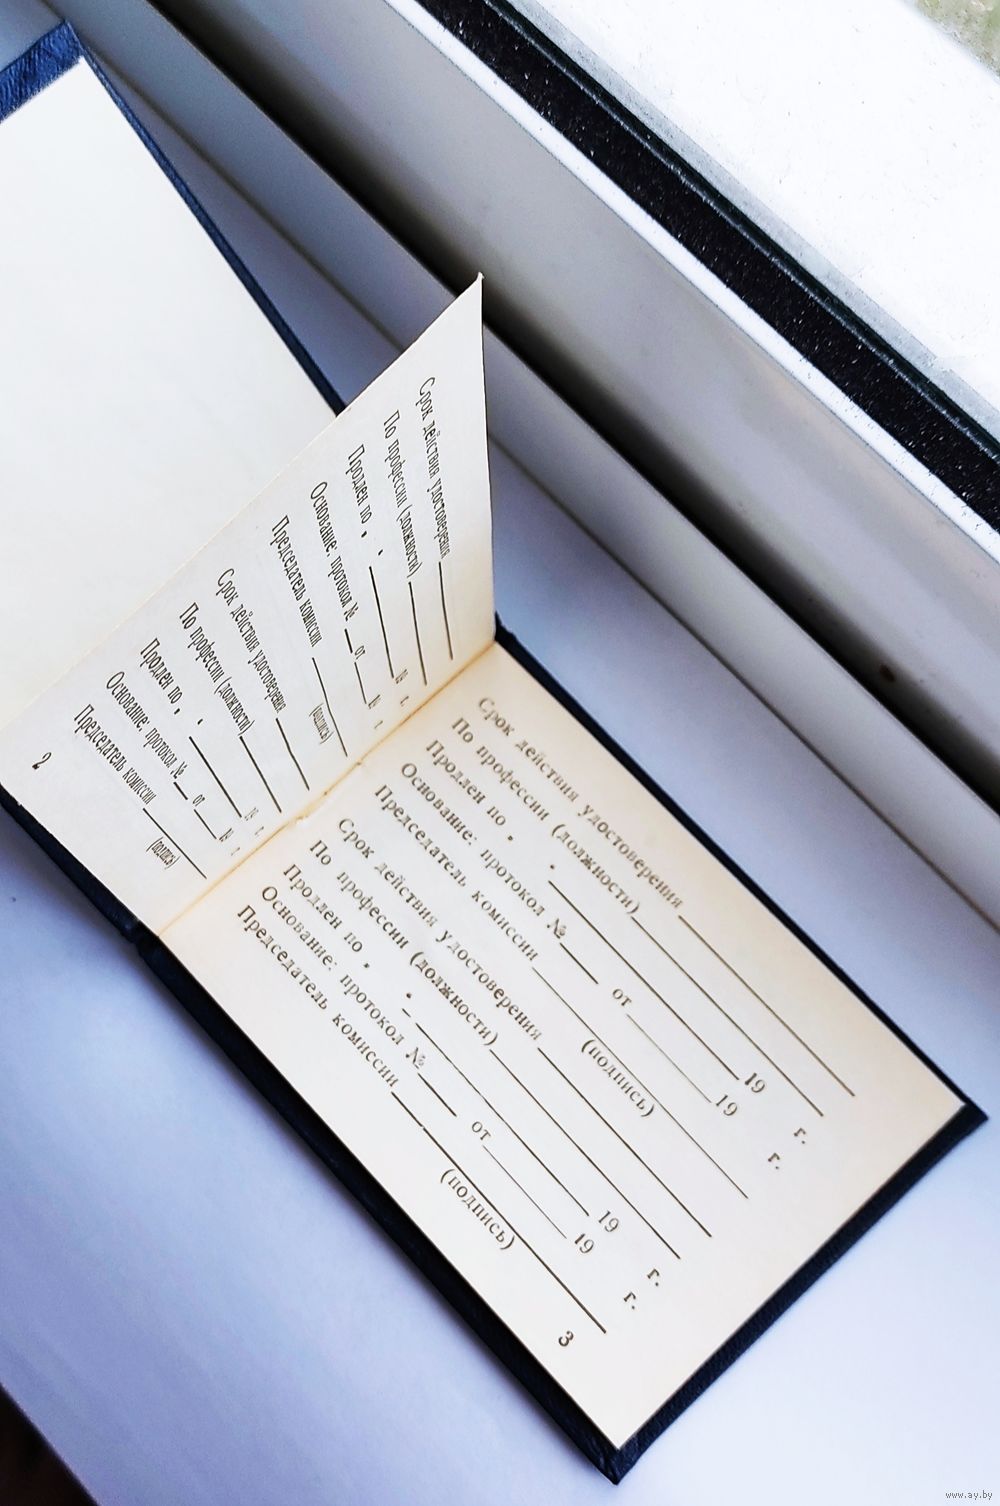 Срок действия удостоверения
По профессии (должности)
Продлен по " " 19 г.
Основание: протокол № от 19 г.
Председатель комиссии
(подпись)
Срок действия удостоверения
По профессии (должности)
Продлен по " " 19 г.
Основание: протокол № от 19 г.
Председатель комиссии
(подпись)
2
Срок действия удостоверения
По профессии (должности)
Продлен по " " 19 г.
Основание: протокол № от 19 г.
Председатель комиссии
(подпись)
Срок действия удостоверения
По профессии (должности)
Продлен по " " 19 г.
Основание: протокол № от 19 г.
Председатель комиссии
(подпись)
3
www.ay.by